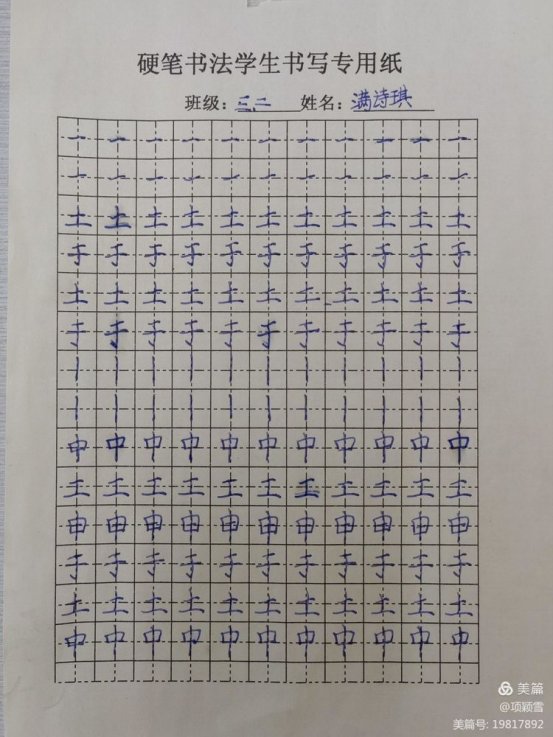 硬笔书法学生书写专用纸
班级：三二 姓名：满诗琪
一 一 一 一 一 一 一 一 一 一 一
一 一 一 一 一 一 一 一 一 一 一
土 土 土 土 土 土 土 土 土 土 土
于 于 于 于 于 于 于 于 于 于 于
土 土 土 土 土 土 土 土 土 土 土
于 于 于 于 于 于 于 于 于 于 于
丨 丨 丨 丨 丨 丨 丨 丨 丨 丨 丨
丨 丨 丨 丨 丨 丨 丨 丨 丨 丨 丨
中 中 中 中 中 中 中 中 中 中 中
王 王 王 王 王 王 王 王 王 王 王
申 申 申 申 申 申 申 申 申 申 申
于 于 于 于 于 于 于 于 于 于 于
土 土 土 土 土 土 土 土 土 土 土
中 中 中 中 中 中 中 中 中 中 中
美篇
@项颖雪
美篇号: 19817892